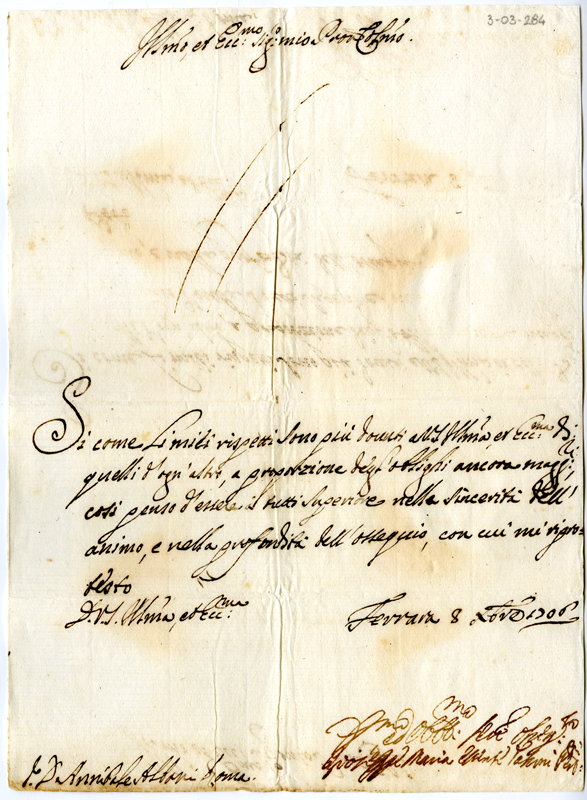 3-03-284
Illmo, et Ecc.mo Sig.r mio P.ron Col.mo
Si come Li miei rispetti sono più dovuti à V.S. Illma, et Ecc.ma di
quelli d'ogn'altro, a proporzione degl'obblighi ancora magg.ri,
così penso d'essere à tutti superiore nella sincerità dell'
animo, e nella profondità dell'ossequio, con cui mi ripro-
testo
D.V.S. Illma, et Ecc.ma
Ferrara 8 Xbre 1706
Giuseppe Maria
S.r D. Annibale Albani Roma.